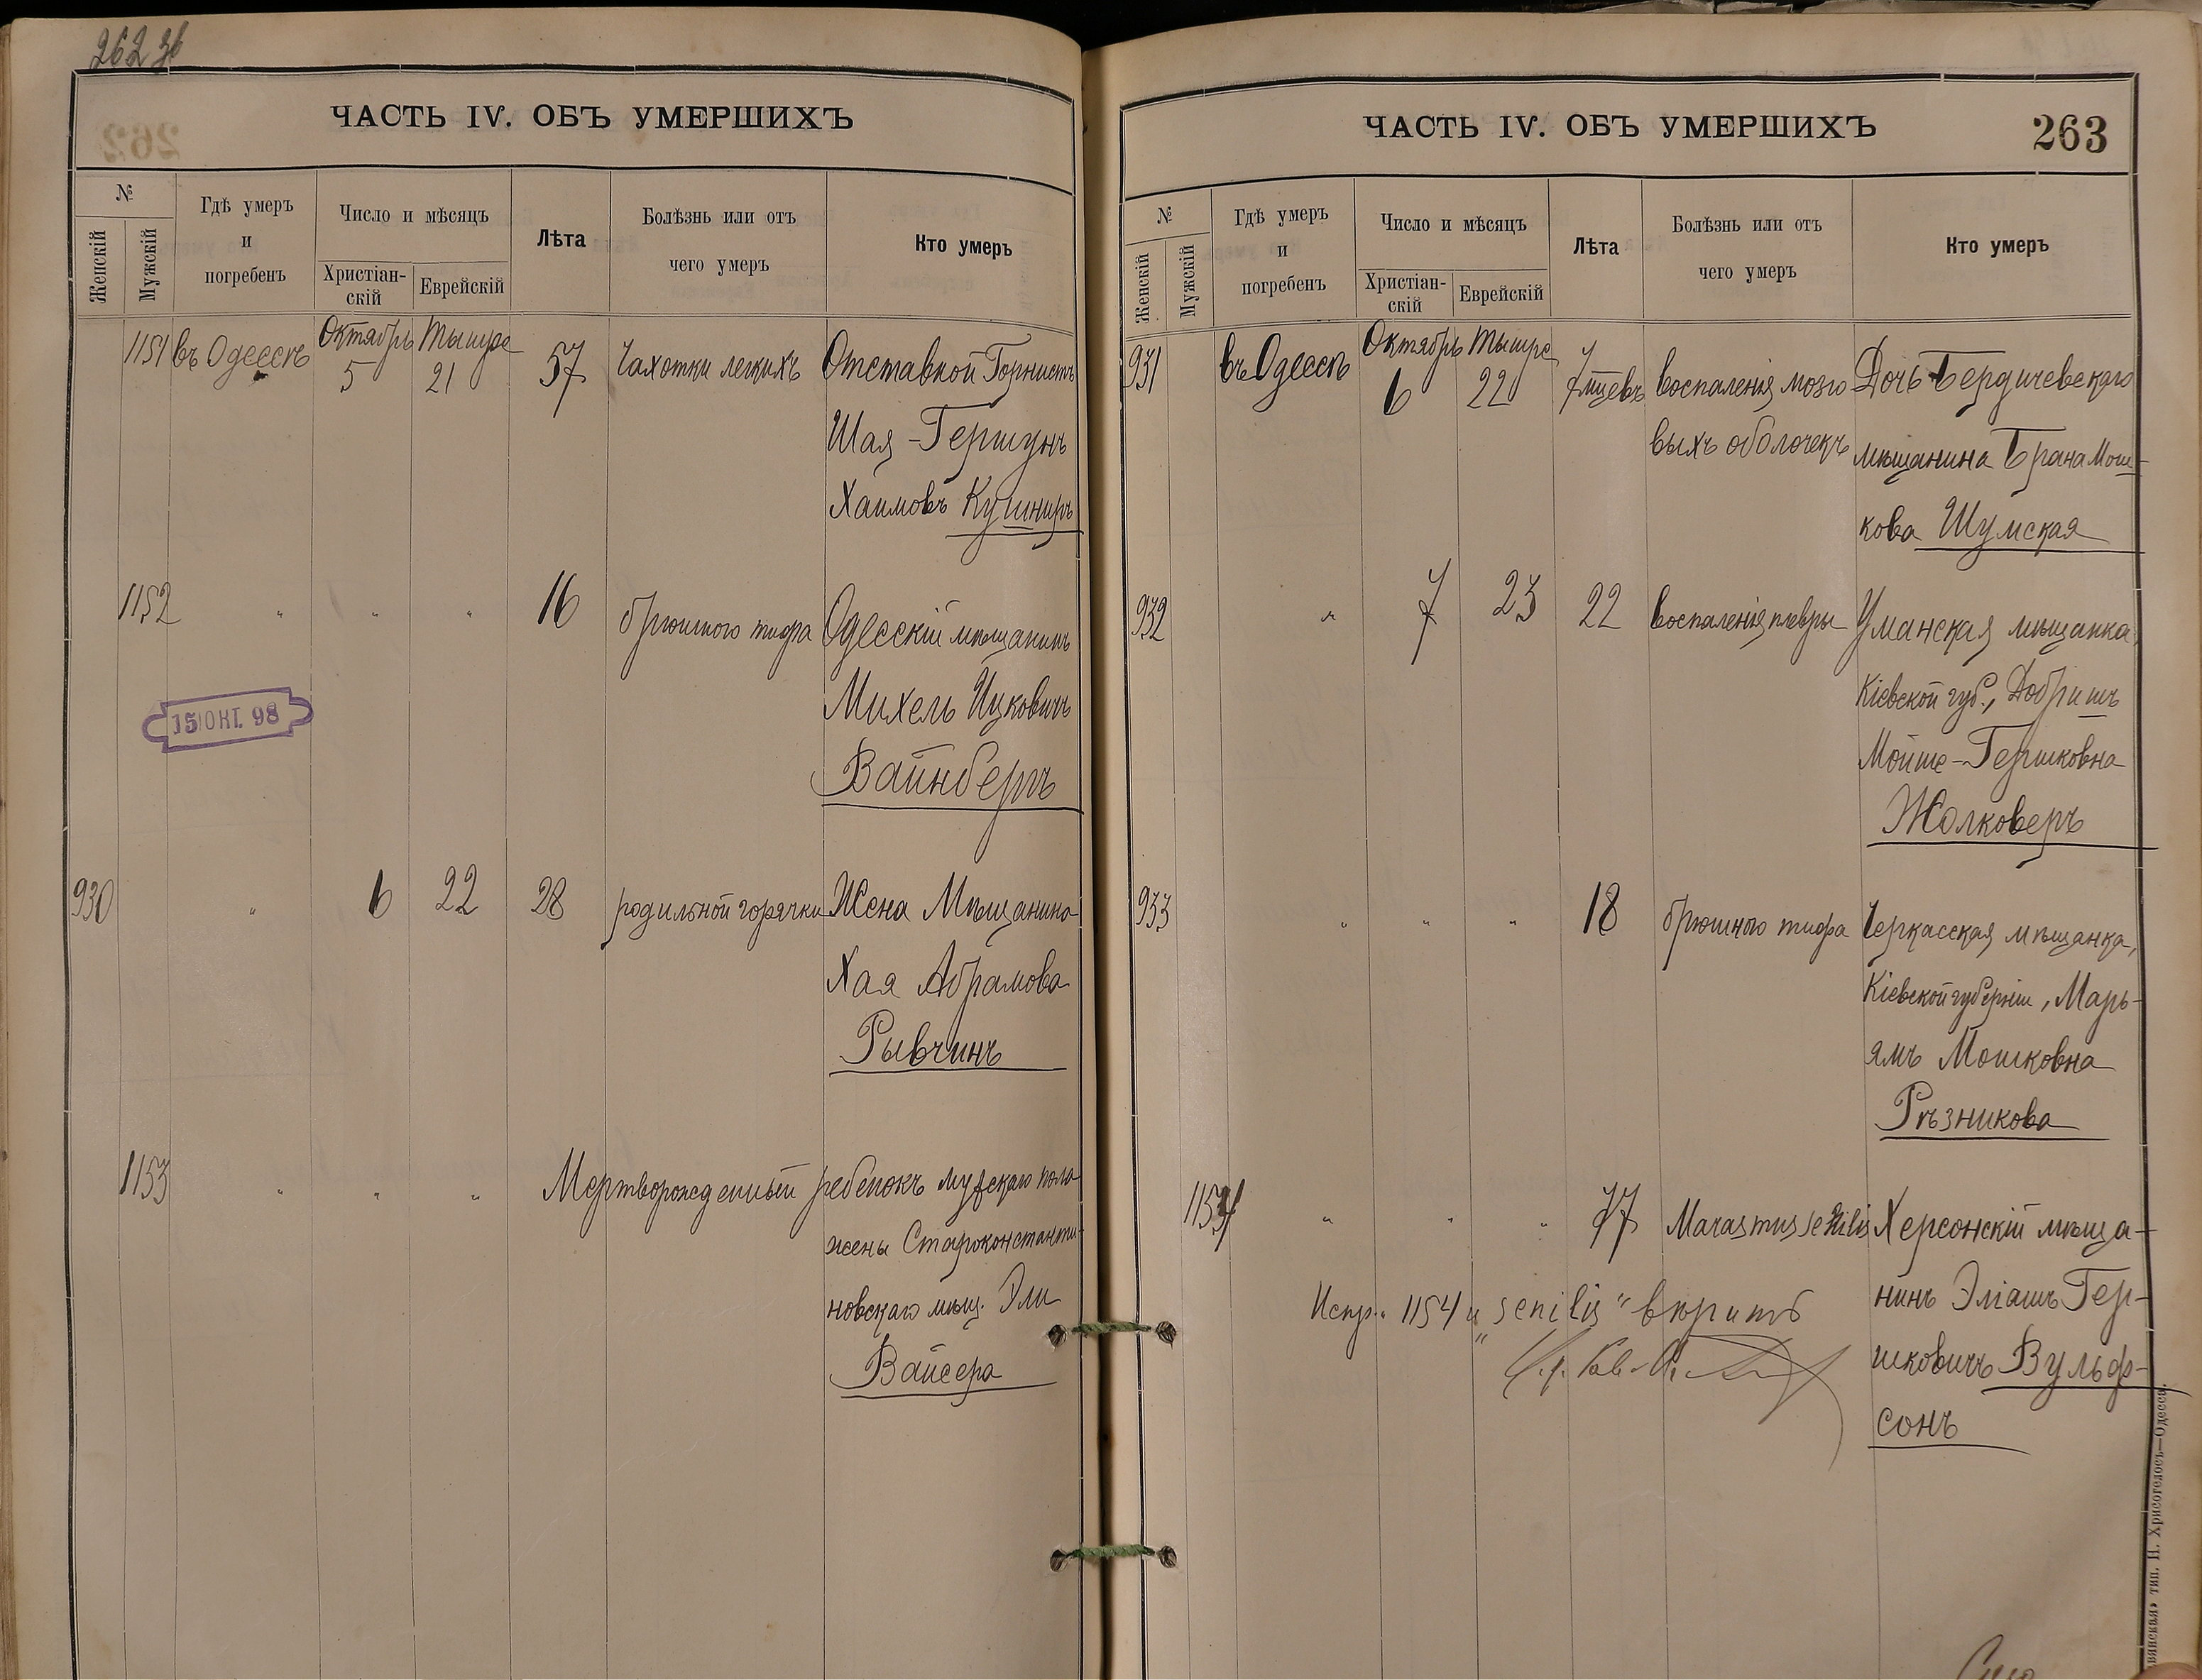 262 зб
ЧАСТЬ IV. ОБЪ УМЕРШИХЪ
№
Женскій
Мужскій
Гдѣ умеръ
и
погребенъ
Число и мѣсяцъ
Христіан-
скій
Еврейскій
Лѣта
Болѣзнь или отъ
чего умеръ
Кто умеръ
1151 въ Одессѣ Октябрь 5 Тышре 21 57 Чахотки легкихъ Отставной Горнистъ
Шая-Гершунъ
Хаимовъ Кушниръ
1152 " " " 16 брюшного тифа Одесскій мѣщанинъ
Михель Ицковичъ
Вайнбергъ
15 ОКТ. 98
930 " 6 22 28 родильной горячки Жена Мѣщанина
Хая Абрамова
Рывчинъ
1153 " " " Мертворожденный ребенокъ мужскаго пола
жены Староконстанти-
новскаго мѣщ. Эли
Вайсера
ЧАСТЬ IV. ОБЪ УМЕРШИХЪ
263
№
Женскій
Мужскій
Гдѣ умеръ
и
погребенъ
Число и мѣсяцъ
Христіан-
скій
Еврейскій
Лѣта
Болѣзнь или отъ
чего умеръ
Кто умеръ
931 въ Одессѣ Октябрь 6 Тышре 22 7 мцевъ воспаленія мозго Дочь Бердичевскаго
выхъ оболочекъ мѣщанина Брана Мош-
кова Шумская
932 " 7 23 22 воспаленія плевры Уманская мѣщанка,
Кіевской губ., Добришъ
Мойше-Гершковна
Жолковеръ
933 " " " 18 брюшного тифа Черкасская мѣщанка,
Кіевской губерніи, Марь-
ямъ Мошковна
Рѣзникова
1154 " " " 77 Marasmus senilis Херсонскій мѣща-
нинъ Эліашъ Гер-
шковичъ Вульф-
сонъ
Испр. " 1154 и "senilis" вѣрить
тип. И. Хрисогелосъ—Одесса.